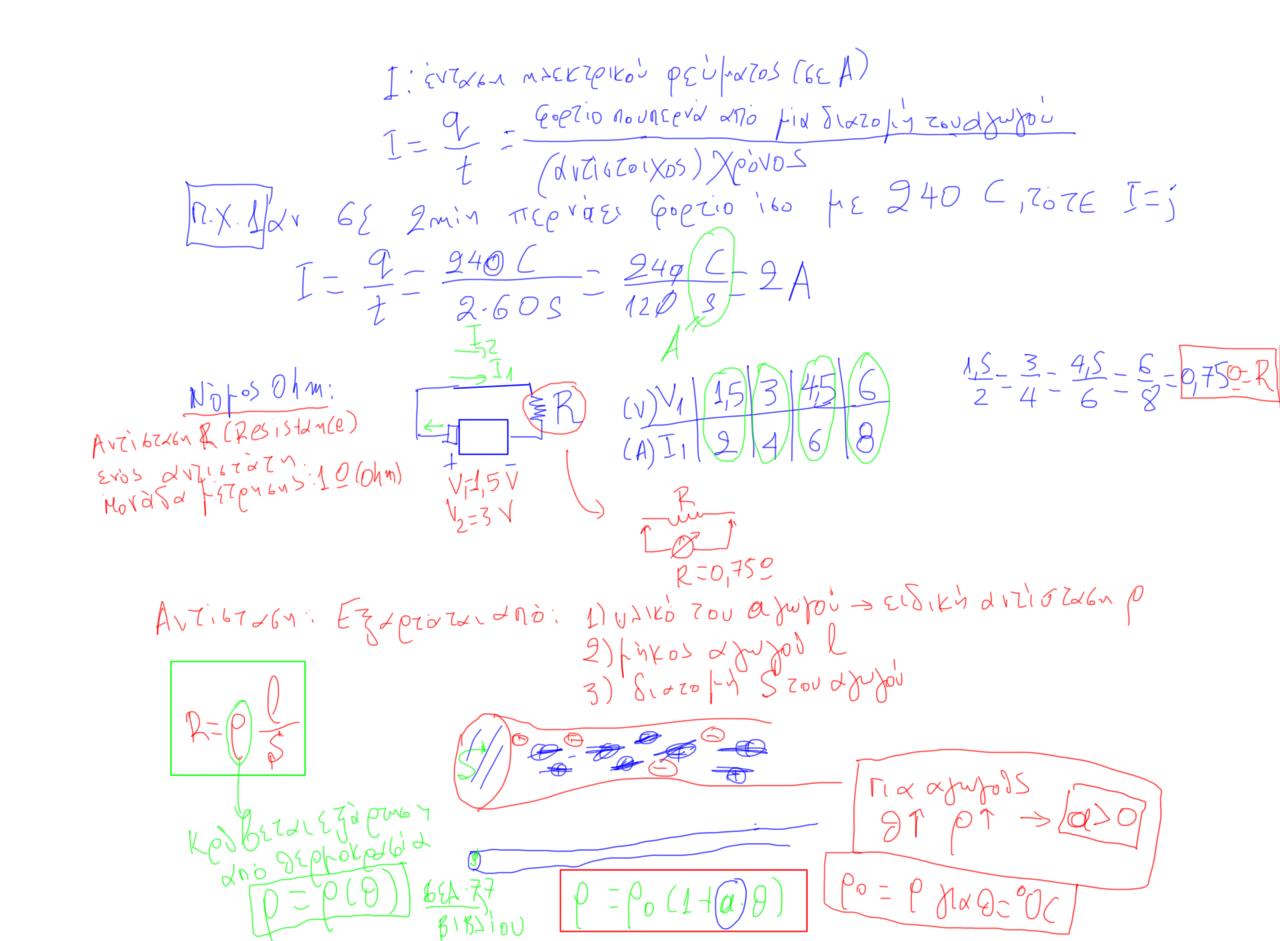 I: ένταση ηλεκτρικού ρεύματος (σε Α)
I = q/t = φορτίο που περνά από μία διατομή του αγωγού / (αντίστοιχος) χρόνος
π.χ.1 αν σε 2min περνάει φορτίο ίσο με 240 C, τότε I=;
I = q/t = 240 C / 2·60 s = 240 C / 120 s = 2 A
A
I2
I1
Νόμος Ohm:
Αντίσταση R (Resistance)
ενός αντιστάτη.
Μονάδα μέτρησης: 1Ω (Ohm)
R
+ −
V1=1,5 V
V2=3 V
(V) V1 | 1,5 | 3 | 4,5 | 6
(A) I1 | 2 | 4 | 6 | 8
1,5/2 = 3/4 = 4,5/6 = 6/8 = 0,75Ω=R
R
R=0,75Ω
Αντίσταση: Εξαρτάται από: 1) υλικό του αγωγού → ειδική αντίσταση ρ
2) μήκος αγωγού l
3) διατομή S του αγωγού
R = ρ l/S
S
κρύβεται εξάρτηση
από θερμοκρασία
ρ = ρ(θ)
σελ. 77
βιβλίου
S
ρ = ρ0 (1+α·θ)
Για αγωγούς
θ↑ ρ↑ → α>0
ρ0 = ρ για θ=0°C